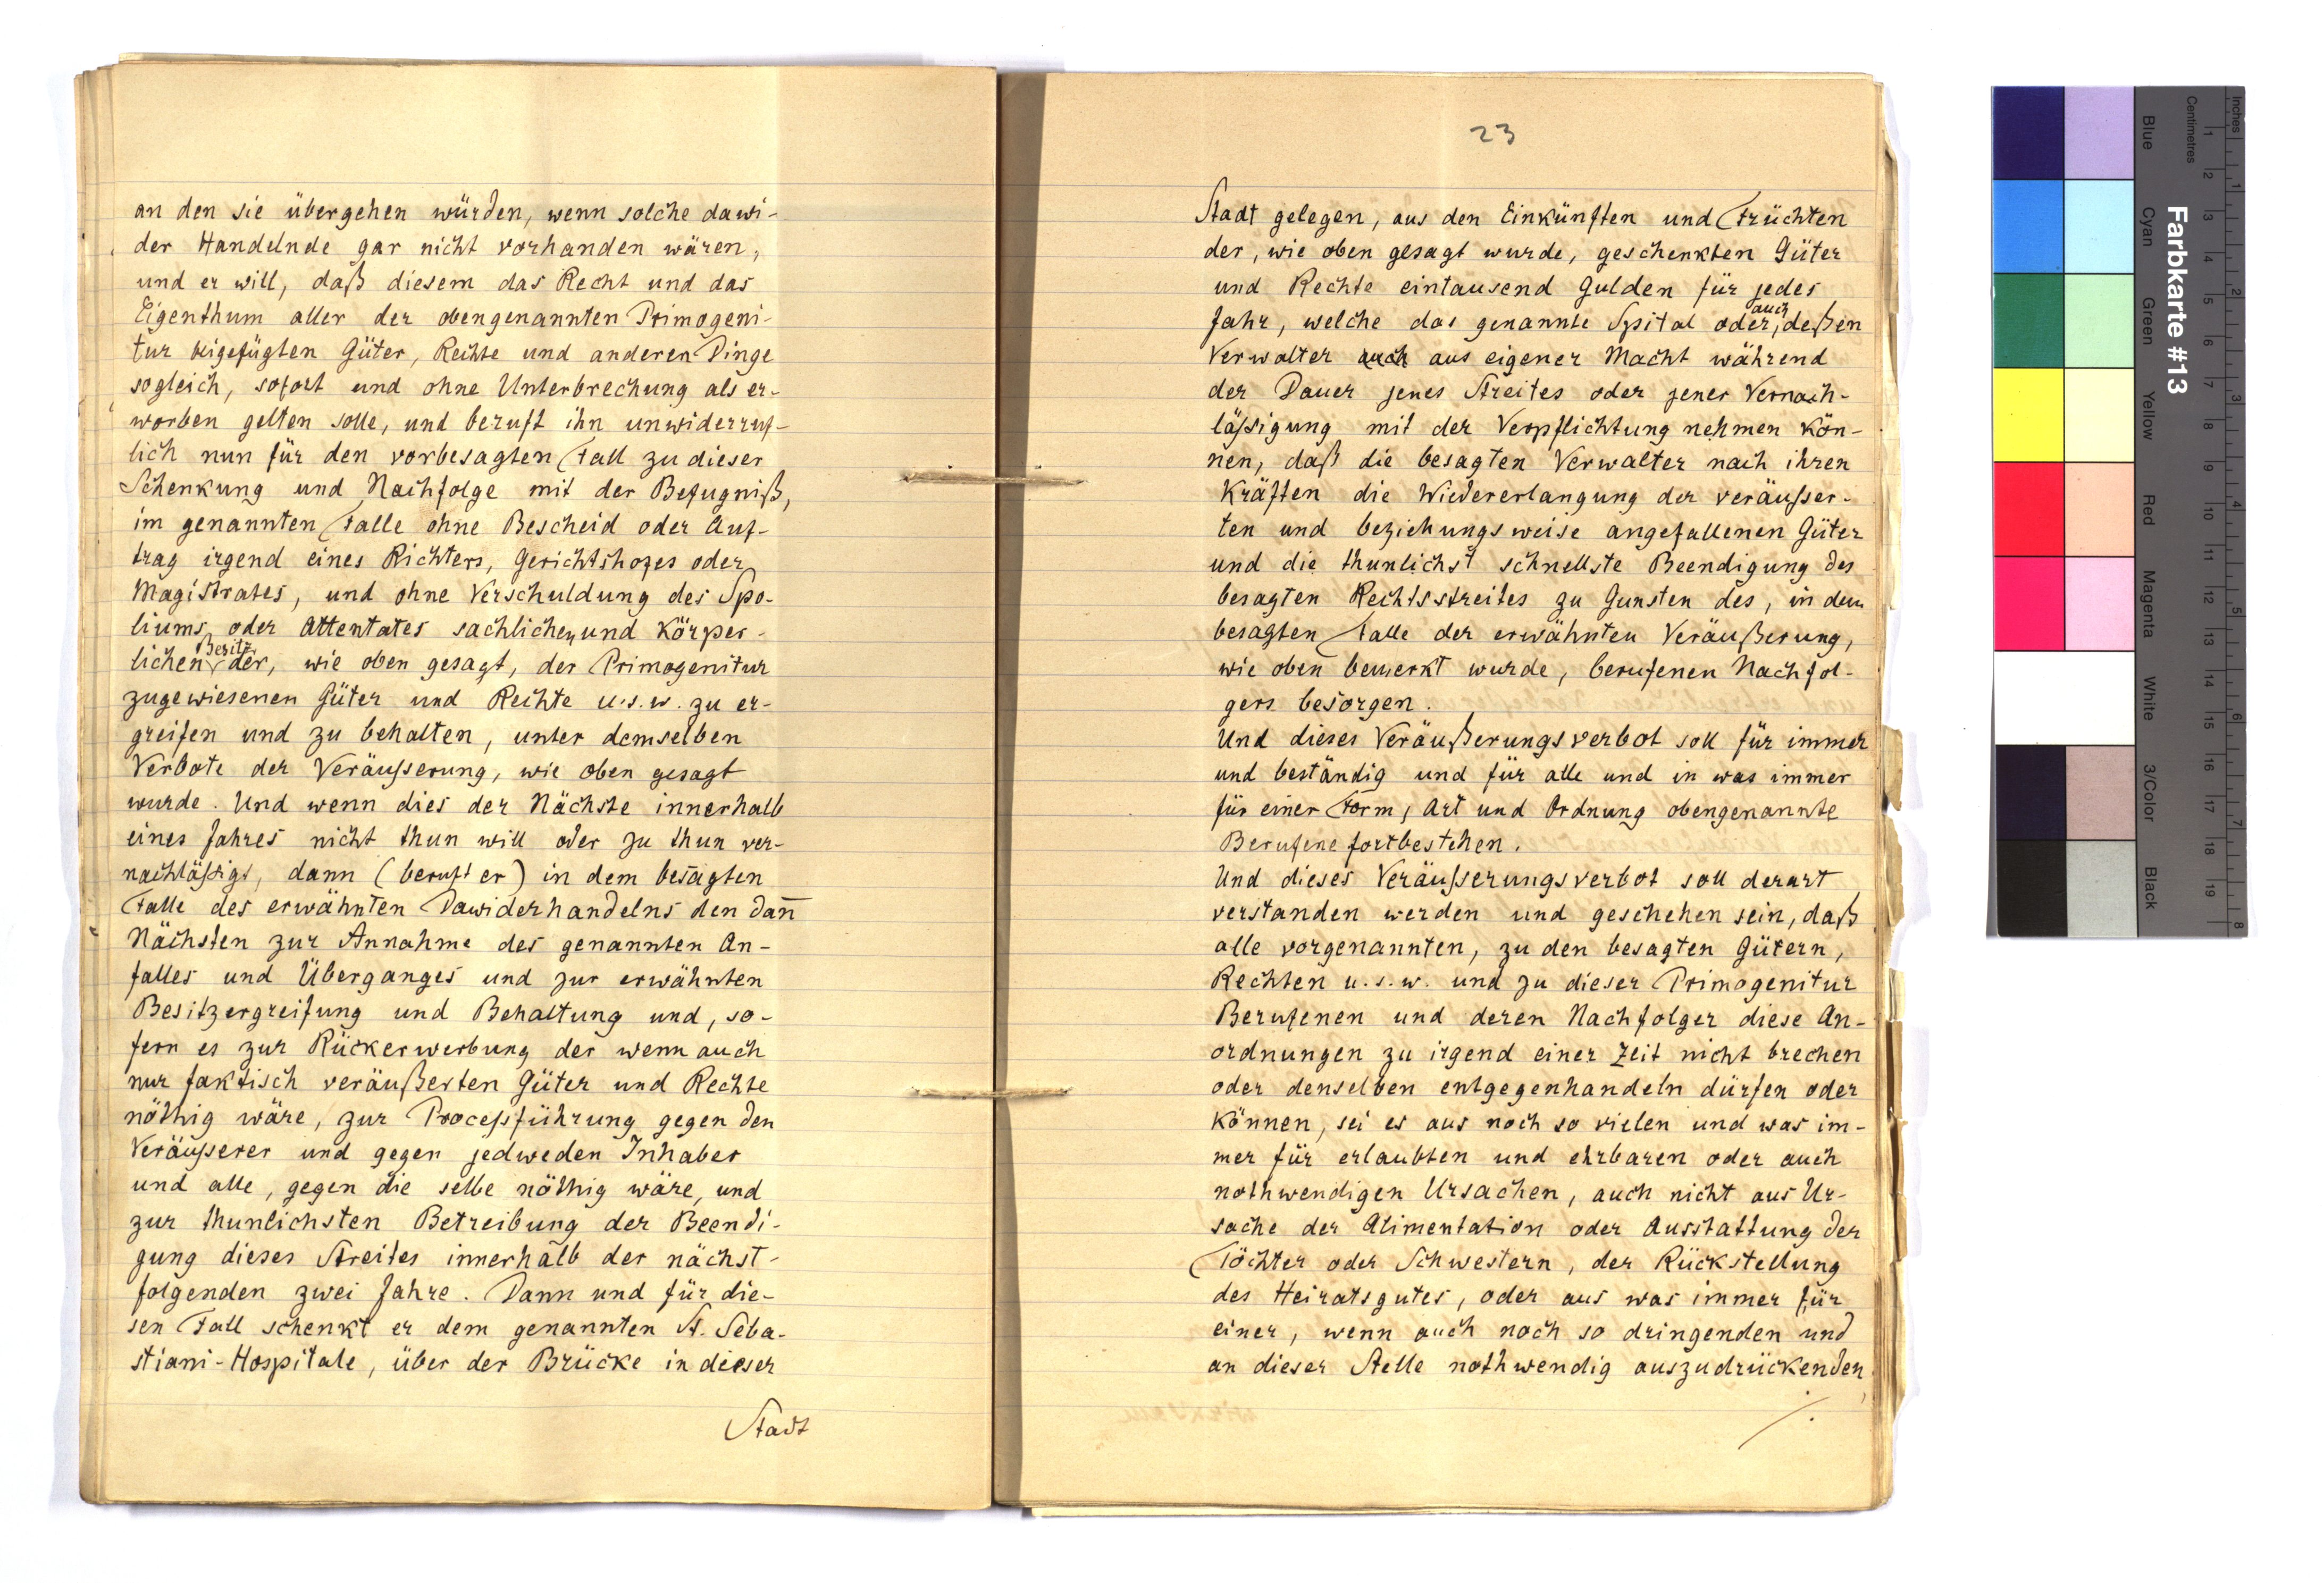 an den sie übergehen würden, wenn solche dawi-
der Handelnde gar nicht vorhanden wären,
und er will, daß diesem das Recht und das
Eigenthum aller der obengenannten Primogeni-
tur beigefügten Güter, Rechte und anderen Dinge
sogleich, sofort und ohne Unterbrechung als er-
worben gelten solle, und beruft ihn unwiderruf-
lich nun für den vorbesagten Fall zu dieser
Schenkung und Nachfolge mit der Befugniß,
im genannten Falle ohne Bescheid oder Auf-
trag irgend eines Richters, Gerichtshofes oder
Magistrates, und ohne Verschuldung des Spo-
liums oder Attentates sachlichen und körper-
lichen Besitz der, wie oben gesagt, der Primogenitur
zugewiesenen Güter und Rechte u.s.w. zu er-
greifen und zu behalten, unter demselben
Verbote der Veräußerung, wie oben gesagt
wurde. Und wenn dies der Nächste innerhalb
eines Jahres nicht thun will oder zu thun ver-
nachläßigt, dann (beruft er) in dem besagten
Falle des erwähnten Dawiderhandelns den dan̄
Nächsten zur Annahme des genannten An-
falles und Überganges und zur erwähnten
Besitzergreifung und Behaltung und, so-
fern es zur Rückerwerbung der wenn auch
nur faktisch veräußerten Güter und Rechte
nöthig wäre, zur Proceßführung gegen den
Veräußerer und gegen jedweden Inhaber
und alle, gegen die selbe nöthig wäre, und
zur thunlichsten Betreibung der Beendi-
gung dieses Streites innerhalb der nächst-
folgenden zwei Jahre. Dann und für die-
sen Fall schenkt er dem genannten St. Seba-
stiani-Hospitale, über der Brücke in dieser
Stadt
23
Stadt gelegen, aus den Einkünften und Früchten
der, wie oben gesagt wurde, geschenkten Güter
und Rechte eintausend Gulden für jedes
Jahr, welche das genannte Spital oder auch, deßen
Verwalter auch aus eigener Macht während
der Dauer jenes Streites oder jener Vernach-
läßigung mit der Verpflichtung nehmen kön-
nen, daß die besagten Verwalter nach ihren
Kräften die Wiedererlangung der veräußer-
ten und beziehungsweise angefallenen Güter
und die thunlichst schnellste Beendigung des
besagten Rechtsstreites zu Gunsten des, in dem
besagten Falle der erwähnten Veräußerung,
wie oben bemerkt wurde, berufenen Nachfol-
gers besorgen.
Und dieses Veräußerungsverbot soll für immer
und beständig und für alle und in was immer
für einer Form, Art und Ordnung obengenannte
Berufene fortbestehen.
Und dieses Veräußerungsverbot soll derart
verstanden werden und geschehen sein, daß
alle vorgenannten, zu den besagten Gütern,
Rechten u.s.w. und zu dieser Primogenitur
Berufenen und deren Nachfolger diese An-
ordnungen zu irgend einer Zeit nicht brechen
oder denselben entgegenhandeln dürfen oder
können, sei es aus noch so vielen und was im-
mer für erlaubten und ehrbaren oder auch
nothwendigen Ursachen, auch nicht aus Ur-
sache der Alimentation oder Ausstattung der
Töchter oder Schwestern, der Rückstellung
des Heiratsgutes, oder aus was immer für
einer, wenn auch noch so dringenden und
an dieser Stelle nothwendig auszudrückenden
./.
Farbkarte #13
Inches
Centimetres
1 2 3 4 5 6 7 8 9 10 11 12 13 14 15 16 17 18 19
1 2 3 4 5 6 7 8
Blue
Cyan
Green
Yellow
Red
Magenta
White
3/Color
Black